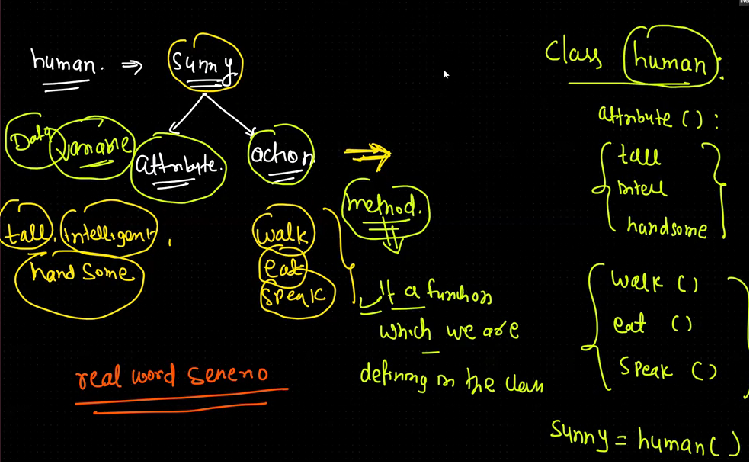 human. ⇒ Sunny
Data variable
attribute.
action
tall. intelligent.
hand some
walk
eat
speak
method.
It a function
which we are
defining in the class
real word seneno
Class human:
attribute ( ) :
tall
intell
handsome
walk ( )
eat ( )
speak ( )
sunny = human( )